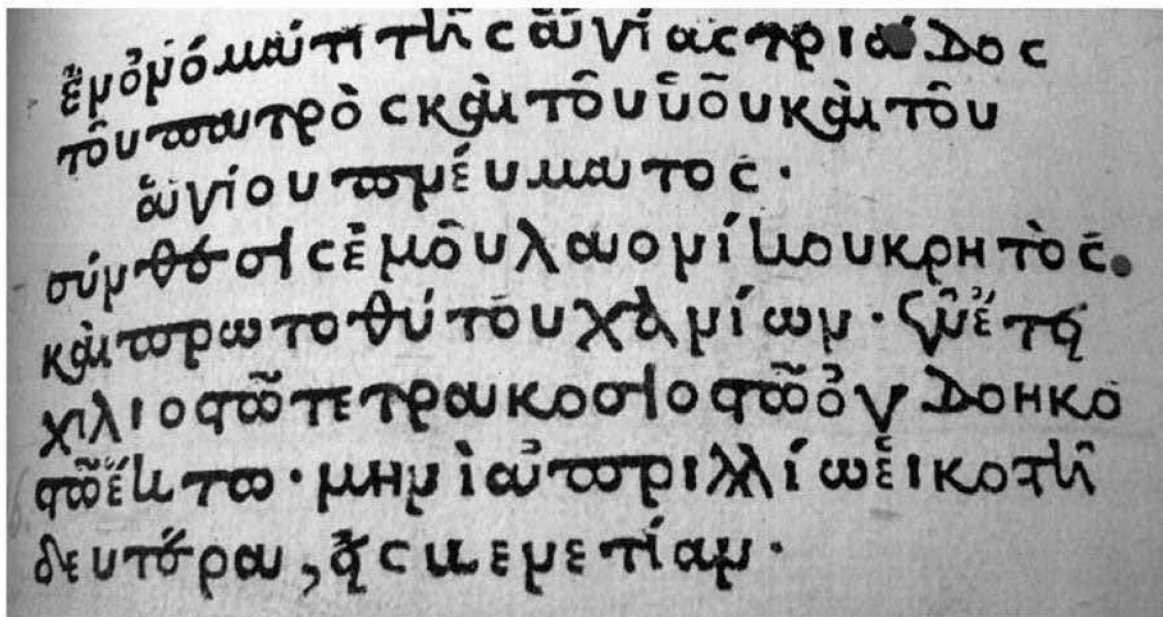 ἐν ὀνόματι τῆς ἁγίας τριάδος
τοῦ πατρὸς καὶ τοῦ ὑοῦ καὶ τοῦ
ἁγίου πνέυματος.
σύνθεσις ἐμοῦ λαονίκου κρητὸς.
καὶ πρωτοθύτου χανίων. ἐν ἔτει
χιλιοστῶ τετρακοσιοστῶ ὀγδοηκο
στῶ ἕκτω. μηνὶ ἀπριλλίω εἰκοστῆ
δευτέρα, εἰς βενετίαν.